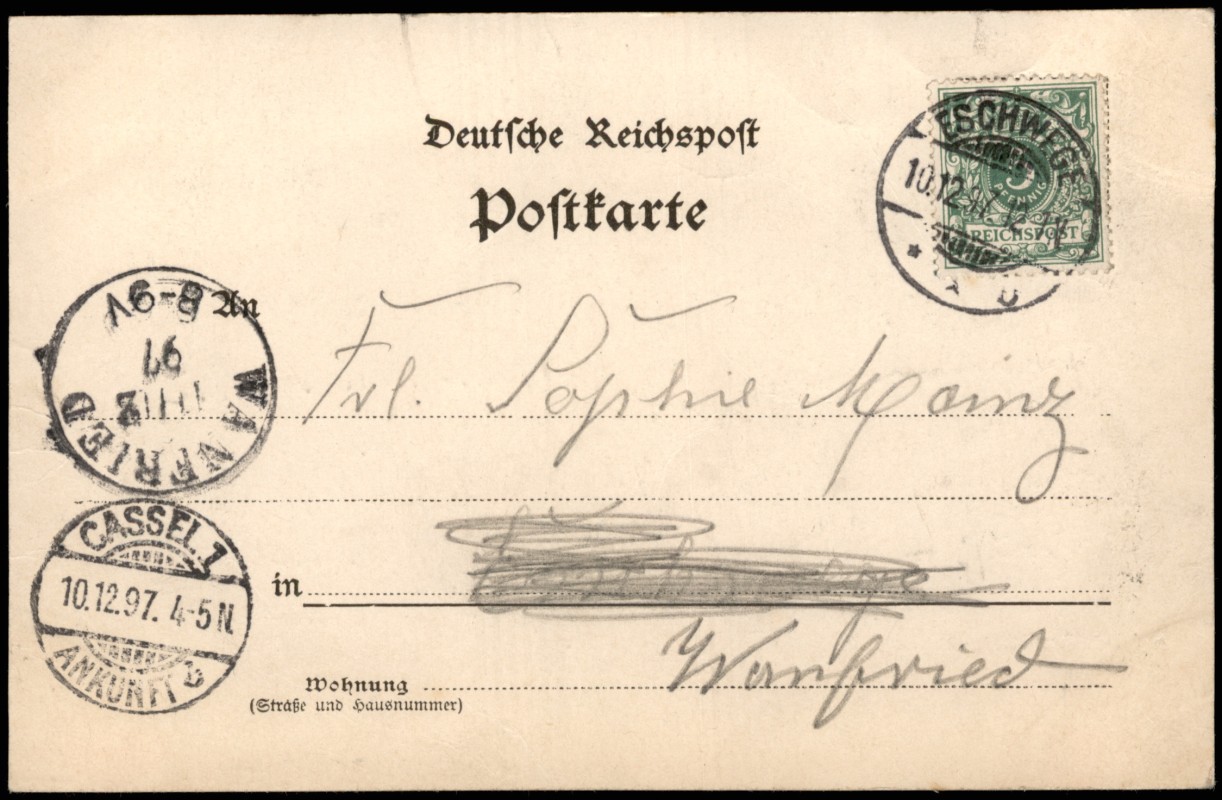 Deutsche Reichspost
Postkarte
ESCHWEGE
10.12.97.
PFENNIG
REICHSPOST
An
Frl. Sophie Mainz
WANFRIED
8-9V
97
CASSEL 1
10.12.97. 4-5 N.
ANKUNFT
in
Wanfried
Wohnung
(Straße und Hausnummer)